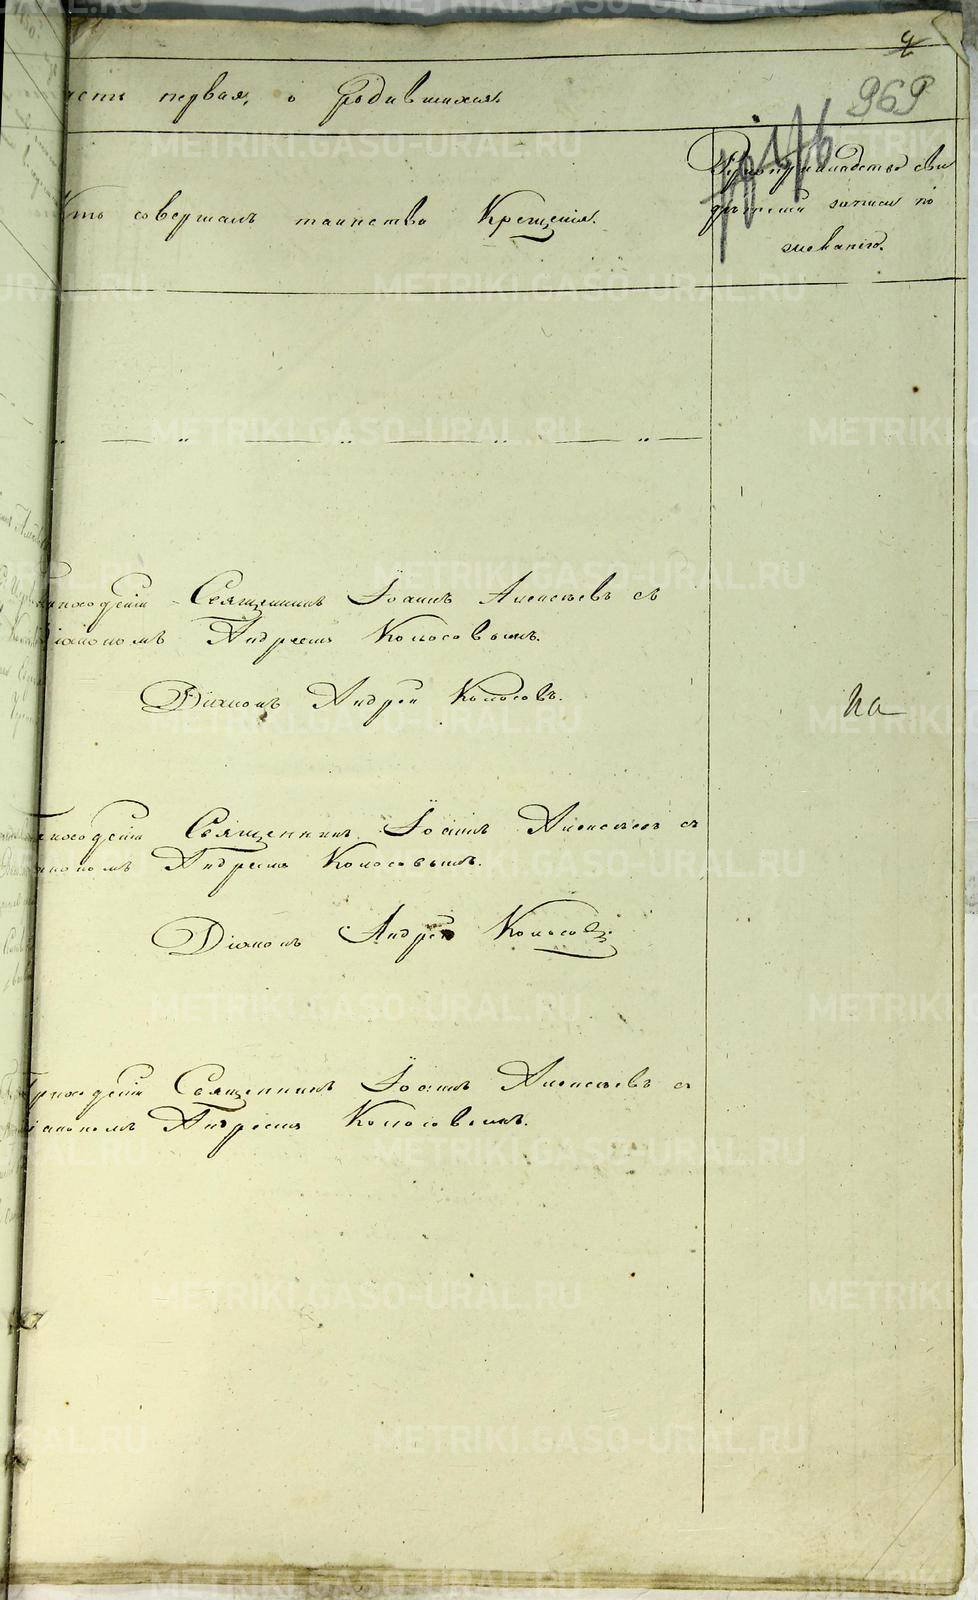 969
асть первая, о родившихся.
Кто совершалъ таинство Крещенія.
Рукоприкладство сви
дѣтелей записи по
желанію.
Приходскій Священникъ Іоаннъ Алексѣевъ съ
Діакономъ Андреемъ Колосовымъ.
Діаконъ Андрей Колосовъ.
иходскій Священникъ Іоаннъ Алексѣевъ съ
акономъ Андреемъ Колосовымъ.
Діаконъ Андрей Колосовъ
Приходскій Священникъ Іоаннъ Алексѣевъ съ
іакономъ Андреемъ Колосовымъ.
METRIKI.GASO-URAL.RU